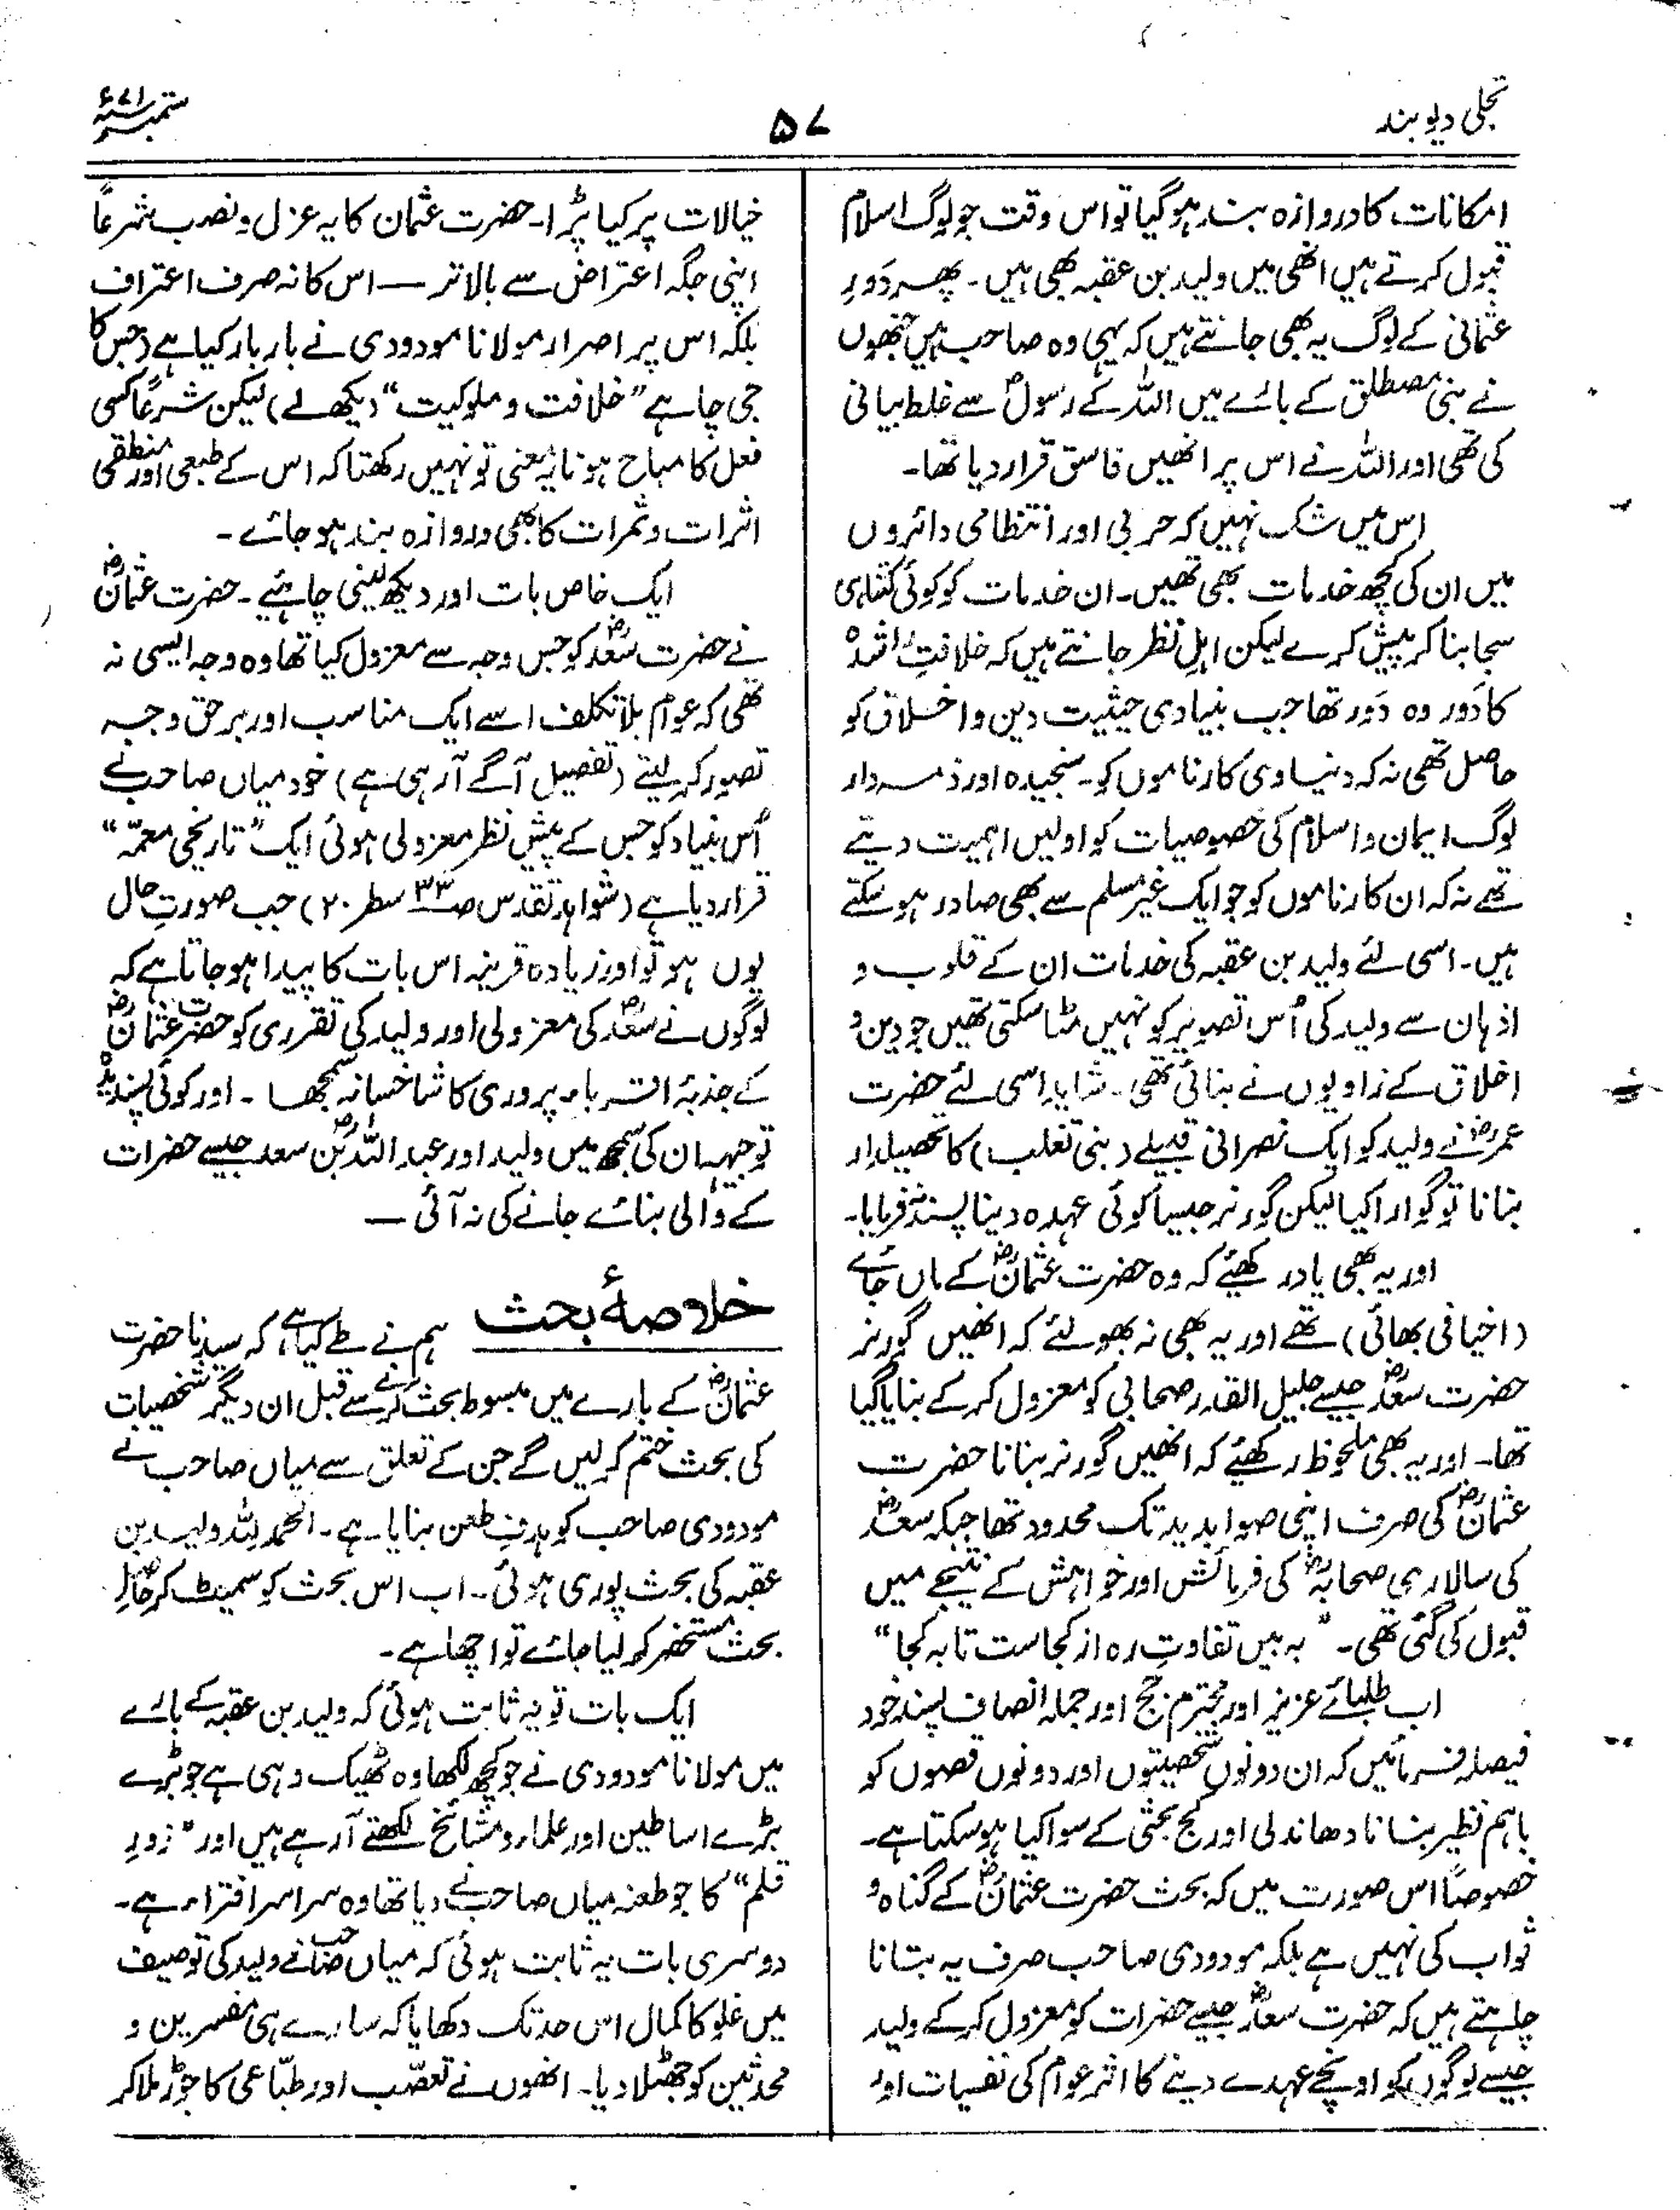 تجلی دیوبند
۵۷
ستمبر ۷۱ء
امکانات کا دروازہ بند ہوگیا تو اس وقت جو لوگ اسلام
قبول کرتے ہیں انھی میں ولید بن عقبہ بھی ہیں۔ پھر دَورِ
عثمانی کے لوگ یہ بھی جانتے ہیں کہ یہی وہ صاحب ہیں جنھوں
نے بنی مصطلق کے بارے میں اللہ کے رسولؐ سے غلط بیانی
کی تھی اور اللہ نے اس پر انھیں فاسق قرار دیا تھا۔
اس میں شک نہیں کہ حربی اور انتظامی دائروں
میں ان کی کچھ خدمات بھی تھیں۔ ان خدمات کو کوئی کتنا ہی
سجا بنا کر پیش کرے لیکن اہلِ نظر جانتے ہیں کہ خلافتِ راشدہ
کا دَور وہ دَور تھا جب بنیادی حیثیت دین و اخلاق کو
حاصل تھی نہ کہ دنیاوی کارناموں کو۔ سنجیدہ اور ذمہ دار
لوگ ایمان و اسلام کی خصوصیات کو اولیں اہمیت دیتے
تھے نہ کہ ان کارناموں کو جو ایک غیر مسلم سے بھی صادر ہوسکتے
ہیں۔ اسی لئے ولید بن عقبہ کی خدمات ان کے قلوب و
اذہان سے ولید کی اُس تصویر کو نہیں مٹا سکتی تھیں جو دین و
اخلاق کے زاویوں نے بنائی تھی۔ شاید اسی لئے حضرت
عمرؓ نے ولید کو ایک نصرانی قبیلے (بنی تغلب) کا تحصیلدار
بنانا تو گوارا کیا لیکن گورنر جیسا کوئی عہدہ دینا پسند نہ فرمایا۔
اور یہ بھی یاد رکھیئے کہ وہ حضرت عثمانؓ کے ماں جائے
(اخیافی بھائی) تھے اور یہ بھی نہ بھولئے کہ انھیں گورنر
حضرت سعدؓ جیسے جلیل القدر صحابی کو معزول کرکے بنایا گیا
تھا۔ اور یہ بھی ملحوظ رکھئیے کہ انھیں گورنر بنانا حضرت
عثمانؓ کی صرف اپنی صوابدید تک محدود تھا جبکہ سعدؓ
کی سالاری صحابہؓ کی فرمائش اور خواہش کے نتیجے میں
قبول کی گئی تھی۔ "بہ بیں تفاوتِ رہ از کجاست تا بہ کجا"
اب طلبائے عزیز اور محترم جج اور جملہ انصاف پسند خود
فیصلہ فرمائیں کہ ان دونوں شخصیتوں اور دونوں قصوں کو
باہم نظیر بنانا دھاندلی اور کج بحثی کے سوا کیا ہوسکتا ہے۔
خصوصاً اس صورت میں کہ بحث حضرت عثمانؓ کے گناہ و
ثواب کی نہیں ہے بلکہ مودودی صاحب صرف یہ بتانا
چاہتے ہیں کہ حضرت سعدؓ جیسے حضرات کو معزول کرکے ولید
جیسے لوگوں کو اونچے عہدے دینے کا اثر عوام کی نفسیات اور
خیالات پر کیا پڑا۔ حضرت عثمان کا یہ عزل و نصب شرعاً
اپنی جگہ اعتراض سے بالاتر — اس کا نہ صرف اعتراف
بلکہ اس پر اصرار مولانا مودودی نے بار بار کیا ہے (جس کا
جی چاہے "خلافت و ملوکیت" دیکھ لے) لیکن شرعاً کسی
فعل کا مباح ہونا یہ معنی تو نہیں رکھتا کہ اس کے طبعی اور منطقی
اثرات و ثمرات کا بھی دروازہ بند ہو جائے۔
ایک خاص بات اور دیکھ لینی چاہئیے۔ حضرت عثمانؓ
نے حضرت سعدؓ کو جس وجہ سے معزول کیا تھا وہ وجہ ایسی نہ
تھی کہ عوام بلا تکلف اسے ایک مناسب اور برحق وجہ
تصور کر لیتے (تفصیل آگے آرہی ہے) خود میاں صاحب نے
اُس بنیاد کو جس کے پیشِ نظر معزولی ہوئی ایک "تاریخی معمّہ"
قرار دیا ہے (شواہد تقدس ص۳۳ سطر ۲۰) جب صورتِ حال
یوں ہو تو اور زیادہ قرینہ اس بات کا پیدا ہو جاتا ہے کہ
لوگوں نے سعدؓ کی معزولی اور ولید کی تقرری کو حضرت عثمانؓ
کے جذبۂ اقرباء پروری کا شاخسانہ سمجھا۔ اور کوئی پسندیدہ
توجیہہ ان کی سمجھ میں ولید اور عبداللہؓ بن سعد جیسے حضرات
کے والی بنائے جانے کی نہ آئی —
خلاصۂ بحث ہم نے طے کیا ہے کہ سیدنا حضرت
عثمانؓ کے بارے میں مبسوط بحث کرنے سے قبل ان دیگر شخصیات
کی بحث ختم کرلیں گے جن کے تعلق سے میاں صاحب نے
مودودی صاحب کو ہدفِ طعن بنایا ہے۔ الحمدللہ ولید بن
عقبہ کی بحث پوری ہوئی۔ اب اس بحث کو سمیٹ کر حاصلِ
بحث مستحضر کرلیا جائے تو اچھا ہے۔
ایک بات تو یہ ثابت ہوئی کہ ولید بن عقبہ کے بارے
میں مولانا مودودی نے جو کچھ لکھا وہ ٹھیک وہی ہے جو بڑے
بڑے اساطین اور علماء و مشائخ لکھتے آرہے ہیں اور "زورِ
قلم" کا جو طعنہ میاں صاحب نے دیا تھا وہ سراسر افتراء ہے۔
دوسری بات یہ ثابت ہوئی کہ میاں صاحب نے ولید کی توصیف
میں غلو کا کمال اس حد تک دکھایا کہ سارے ہی مفسرین و
محدثین کو جھٹلا دیا۔ انھوں نے تعصّب اور طبّاعی کا جوڑ ملا کر